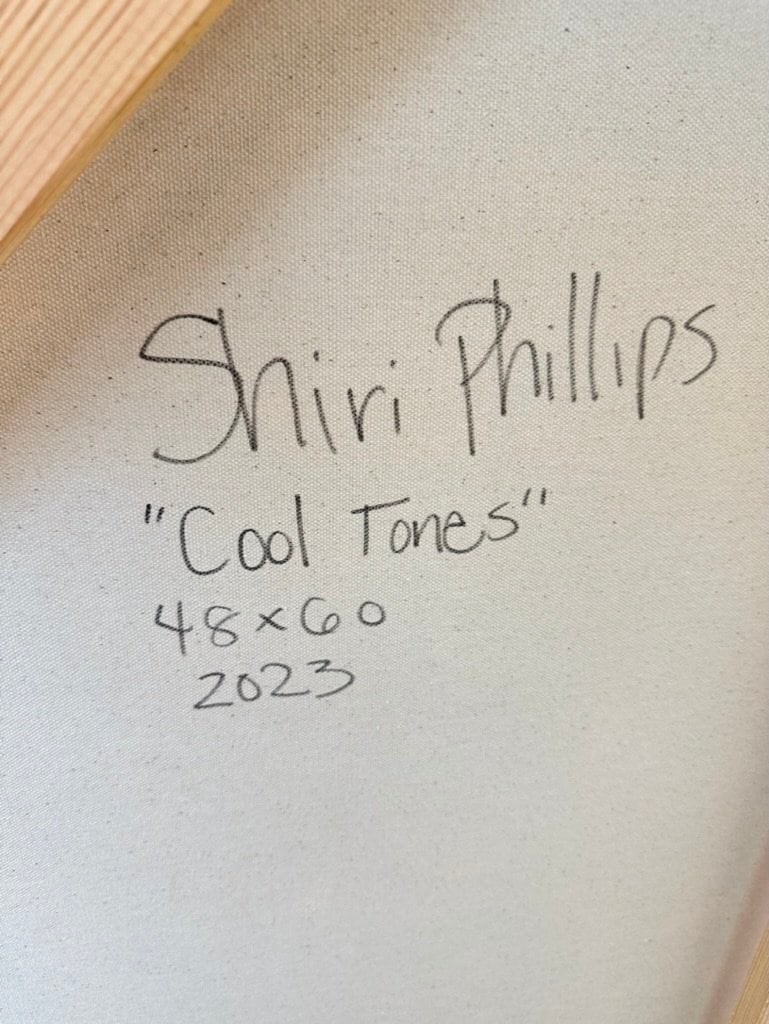 Shiri Phillips
"Cool Tones"
48x60
2023